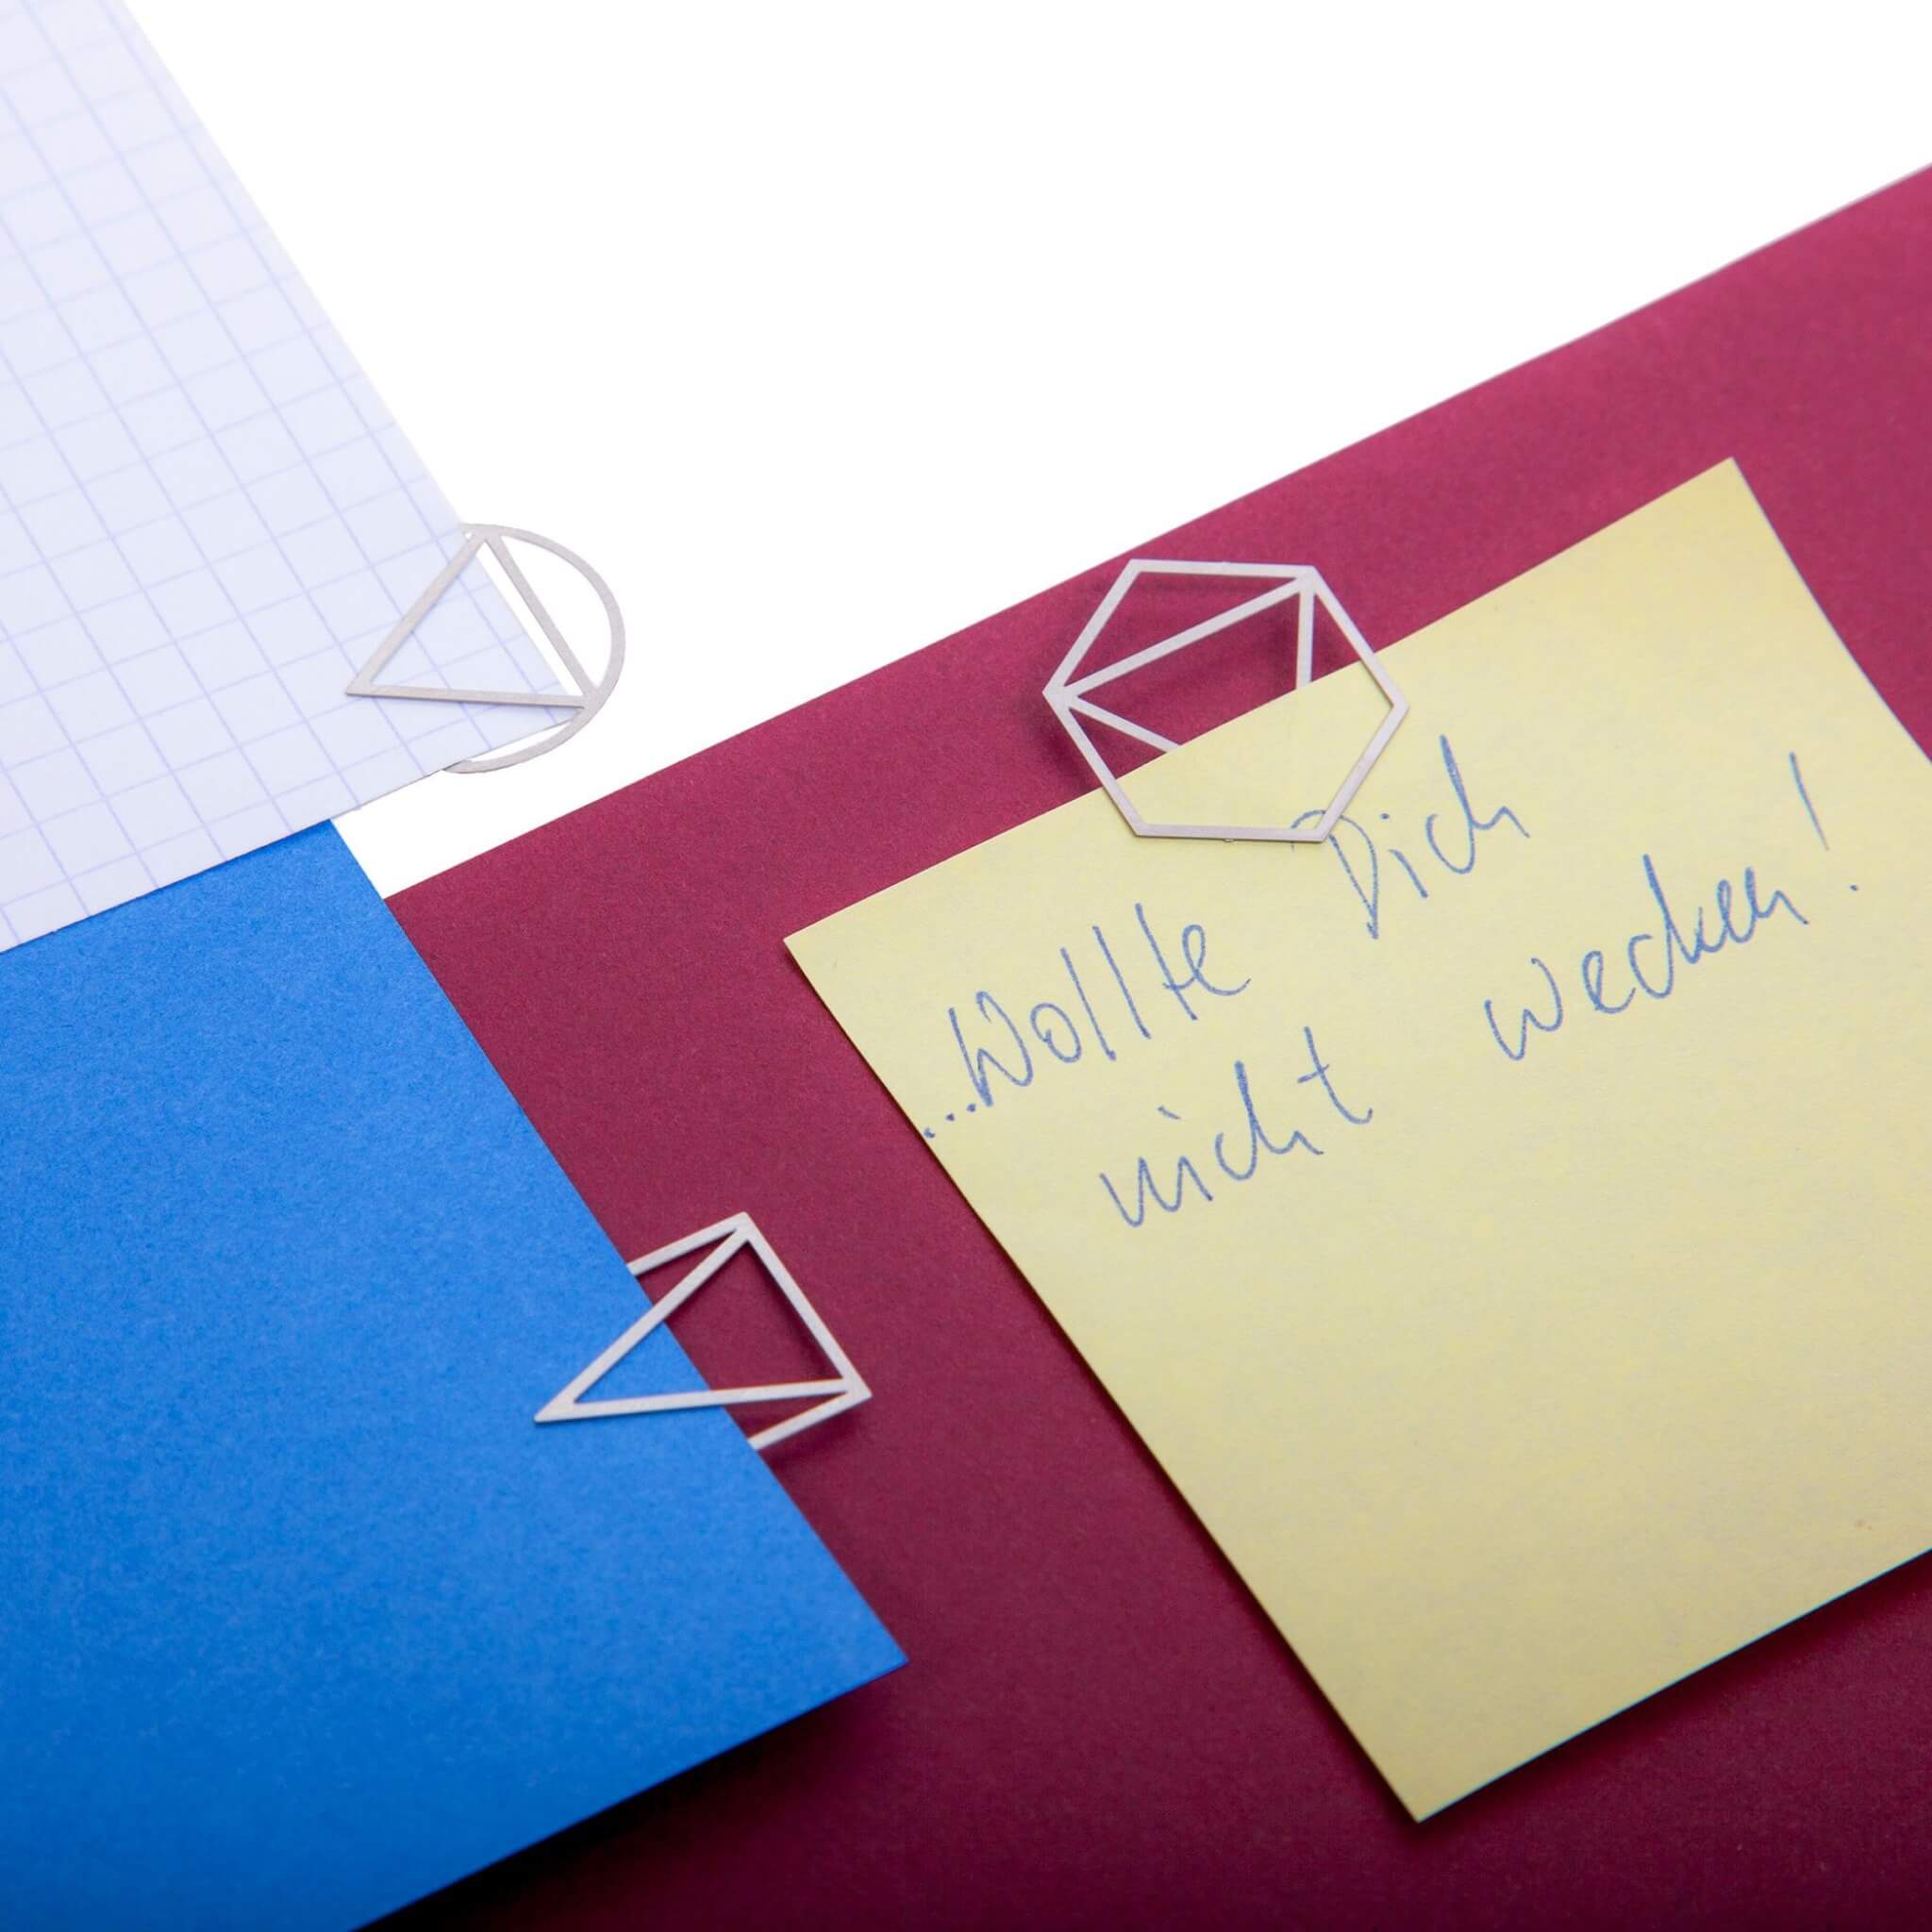 ...Wollte Dich
nicht wecken!